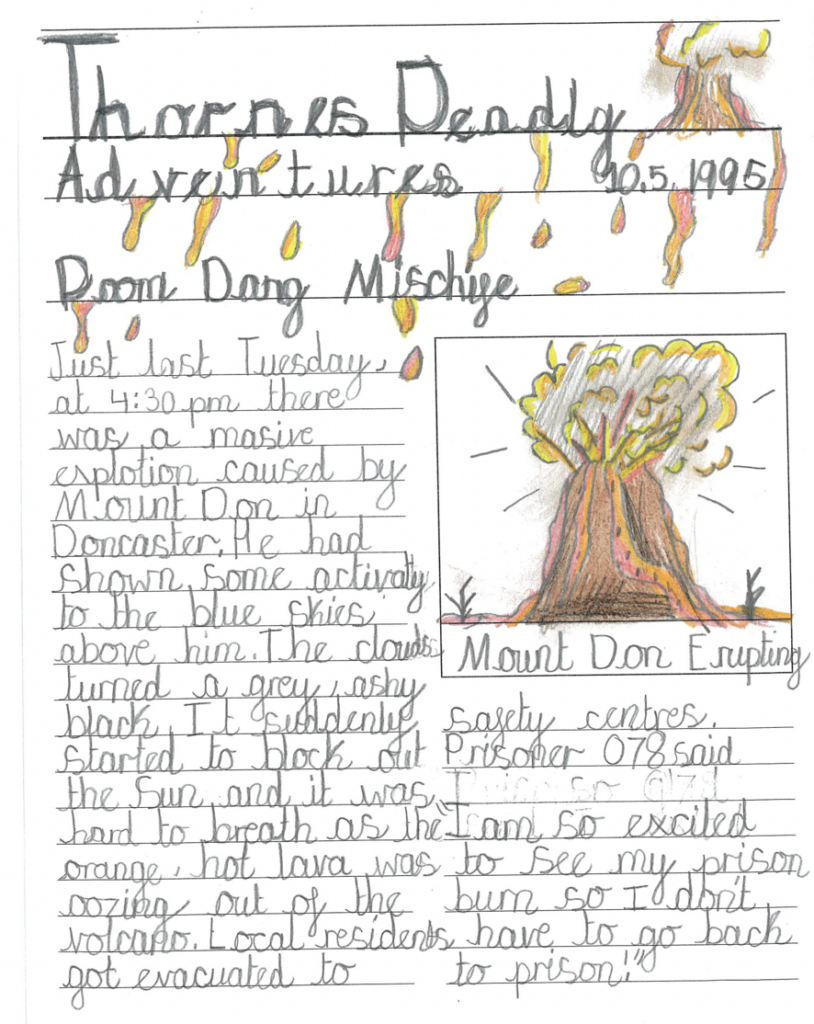 Thornes Deadly
Adventures 10.5.1995
Doom Dang Mischife
Just last Tuesday,
at 4:30pm there
was a masive
explotion caused by
Mount Don in
Doncaster. He had
shown some activaty
to the blue skies
above him. The clouds
turned a grey, ashy
black. It suddenly
started to block out
the Sun and it was
hard to breath as the
orange, hot lava was
oozing out of the
volcano. Local residents
got evacuated to
Mount Don Erupting
safety centres.
Prisoner 078 said
"I am so excited
to see my prison
burn so I don't
have to go back
to prison!"